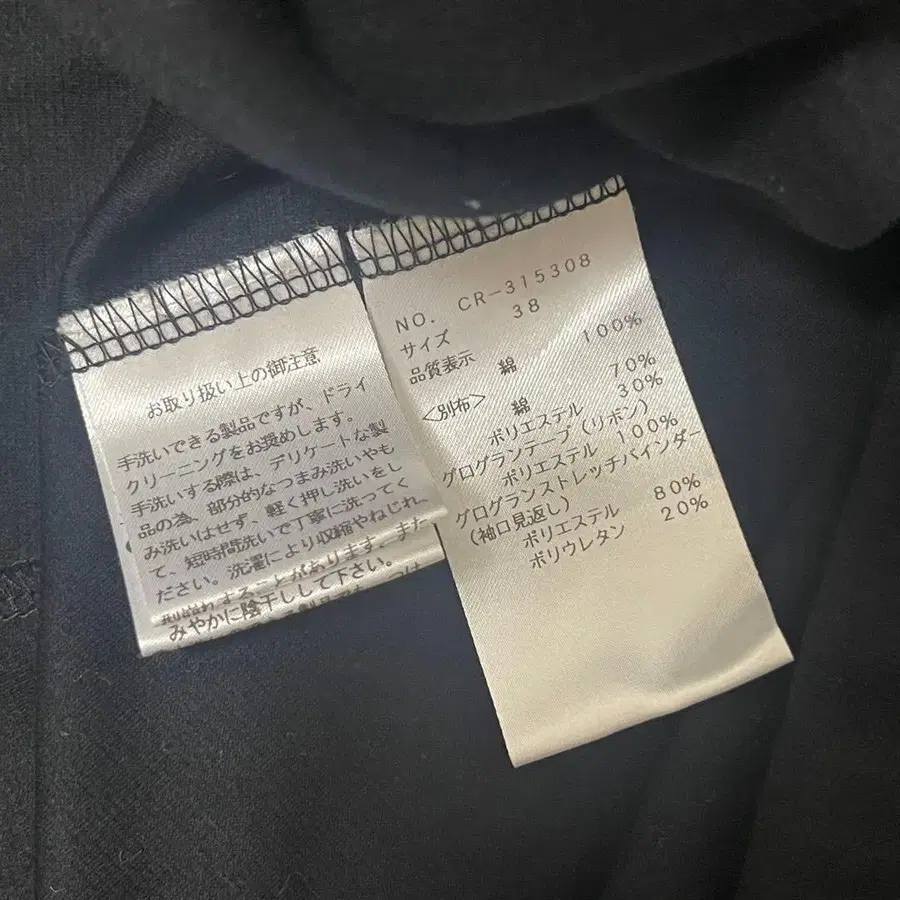 お取り扱い上の御注意
手洗いできる製品ですが、ドライ
クリーニングをお奨めします。
手洗いする際は、デリケートな製
品の為、部分的なつまみ洗いやも
み洗いはせず、軽く押し洗いをし
て、短時間洗いで丁寧に洗ってく
ださい。洗濯により収縮やねじれ、
することがあります。また
みやかに陰干しして下さい。
NO. CR-315308
サイズ 38
品質表示 綿 100%
<別布> 綿 70%
ポリエステル 30%
グログランテープ(リボン)
ポリエステル 100%
グログランストレッチバインダー
(袖口見返し)
ポリエステル 80%
ポリウレタン 20%